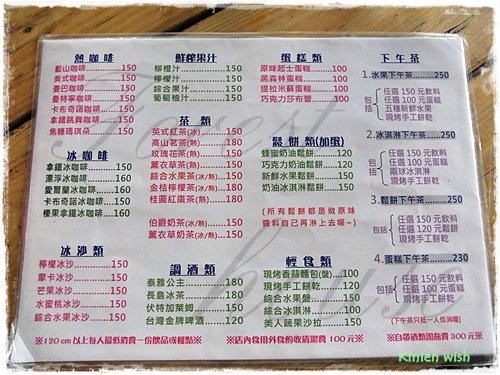 熱咖啡
藍山咖啡..........150
美式咖啡..........150
曼巴咖啡..........150
曼特寧咖啡......150
卡布奇諾咖啡..150
拿鐵跳舞咖啡..150
焦糖瑪琪朵......150
冰咖啡
拿鐵冰咖啡........150
漂浮冰咖啡........160
愛爾蘭冰咖啡....160
卡布奇諾冰咖啡..150
榛果拿鐵冰咖啡..160
冰沙類
檸檬冰沙............150
摩卡冰沙............150
芒果冰沙............150
水蜜桃冰沙........150
綜合水果冰沙....150
鮮榨果汁
柳橙汁............150
檸檬汁............150
綜合果汁........150
葡萄柚汁........150
茶類
英式紅茶(冰/熱)........150
高山茗茶(熱)............180
玫瑰花茶(熱)............150
薰衣草茶(熱)............150
綜合水果茶(冰/熱)....150
金桔檸檬茶(冰/熱)....150
桂圓紅棗茶(熱)........180
伯爵奶茶(冰/熱)........150
薰衣草奶茶(冰/熱)....150
調酒類
泰雅公主............180
長島冰茶............180
伏特加萊姆........150
台灣金牌啤酒....120
蛋糕類
原味起士蛋糕........150
黑森林蛋糕............150
提拉米蘇蛋糕........150
巧克力莎布蕾........100
鬆餅類(加蛋)
蜂蜜奶油鬆餅............120
巧克力奶油鬆餅........120
新鮮水果鬆餅............150
奶油冰淇淋鬆餅........150
(所有鬆餅都是做原味
醬料自己再淋上去喔～)
輕食類
現烤香蒜麵包(盤)......100
現烤手工餅乾............120
綜合水果盤................150
綜合冰淇淋................100
美人蔬果沙拉............150
下午茶
1.水果下午茶........250
包括
任選 150 元飲料
任選 100 元蛋糕
五種新鮮水果
現烤手工餅乾
2.冰淇淋下午茶....250
包括
任選 150 元飲料
任選 100 元蛋糕
兩球冰淇淋
現烤手工餅乾
3.鬆餅下午茶........250
包括
任選 150 元飲料
任選 120 元鬆餅
現烤手工餅乾
4.蛋糕下午茶........230
包括
任選 150 元飲料
任選 100 元蛋糕
現烤手工餅乾
(下午茶只抵一人低消喔)
※120 cm 以上每人最低消費一份飲品或餐點※
※店內食用外食酌收清潔費 100 元※
※自帶酒類開瓶費 300 元※
Forest
house
Kinien wish